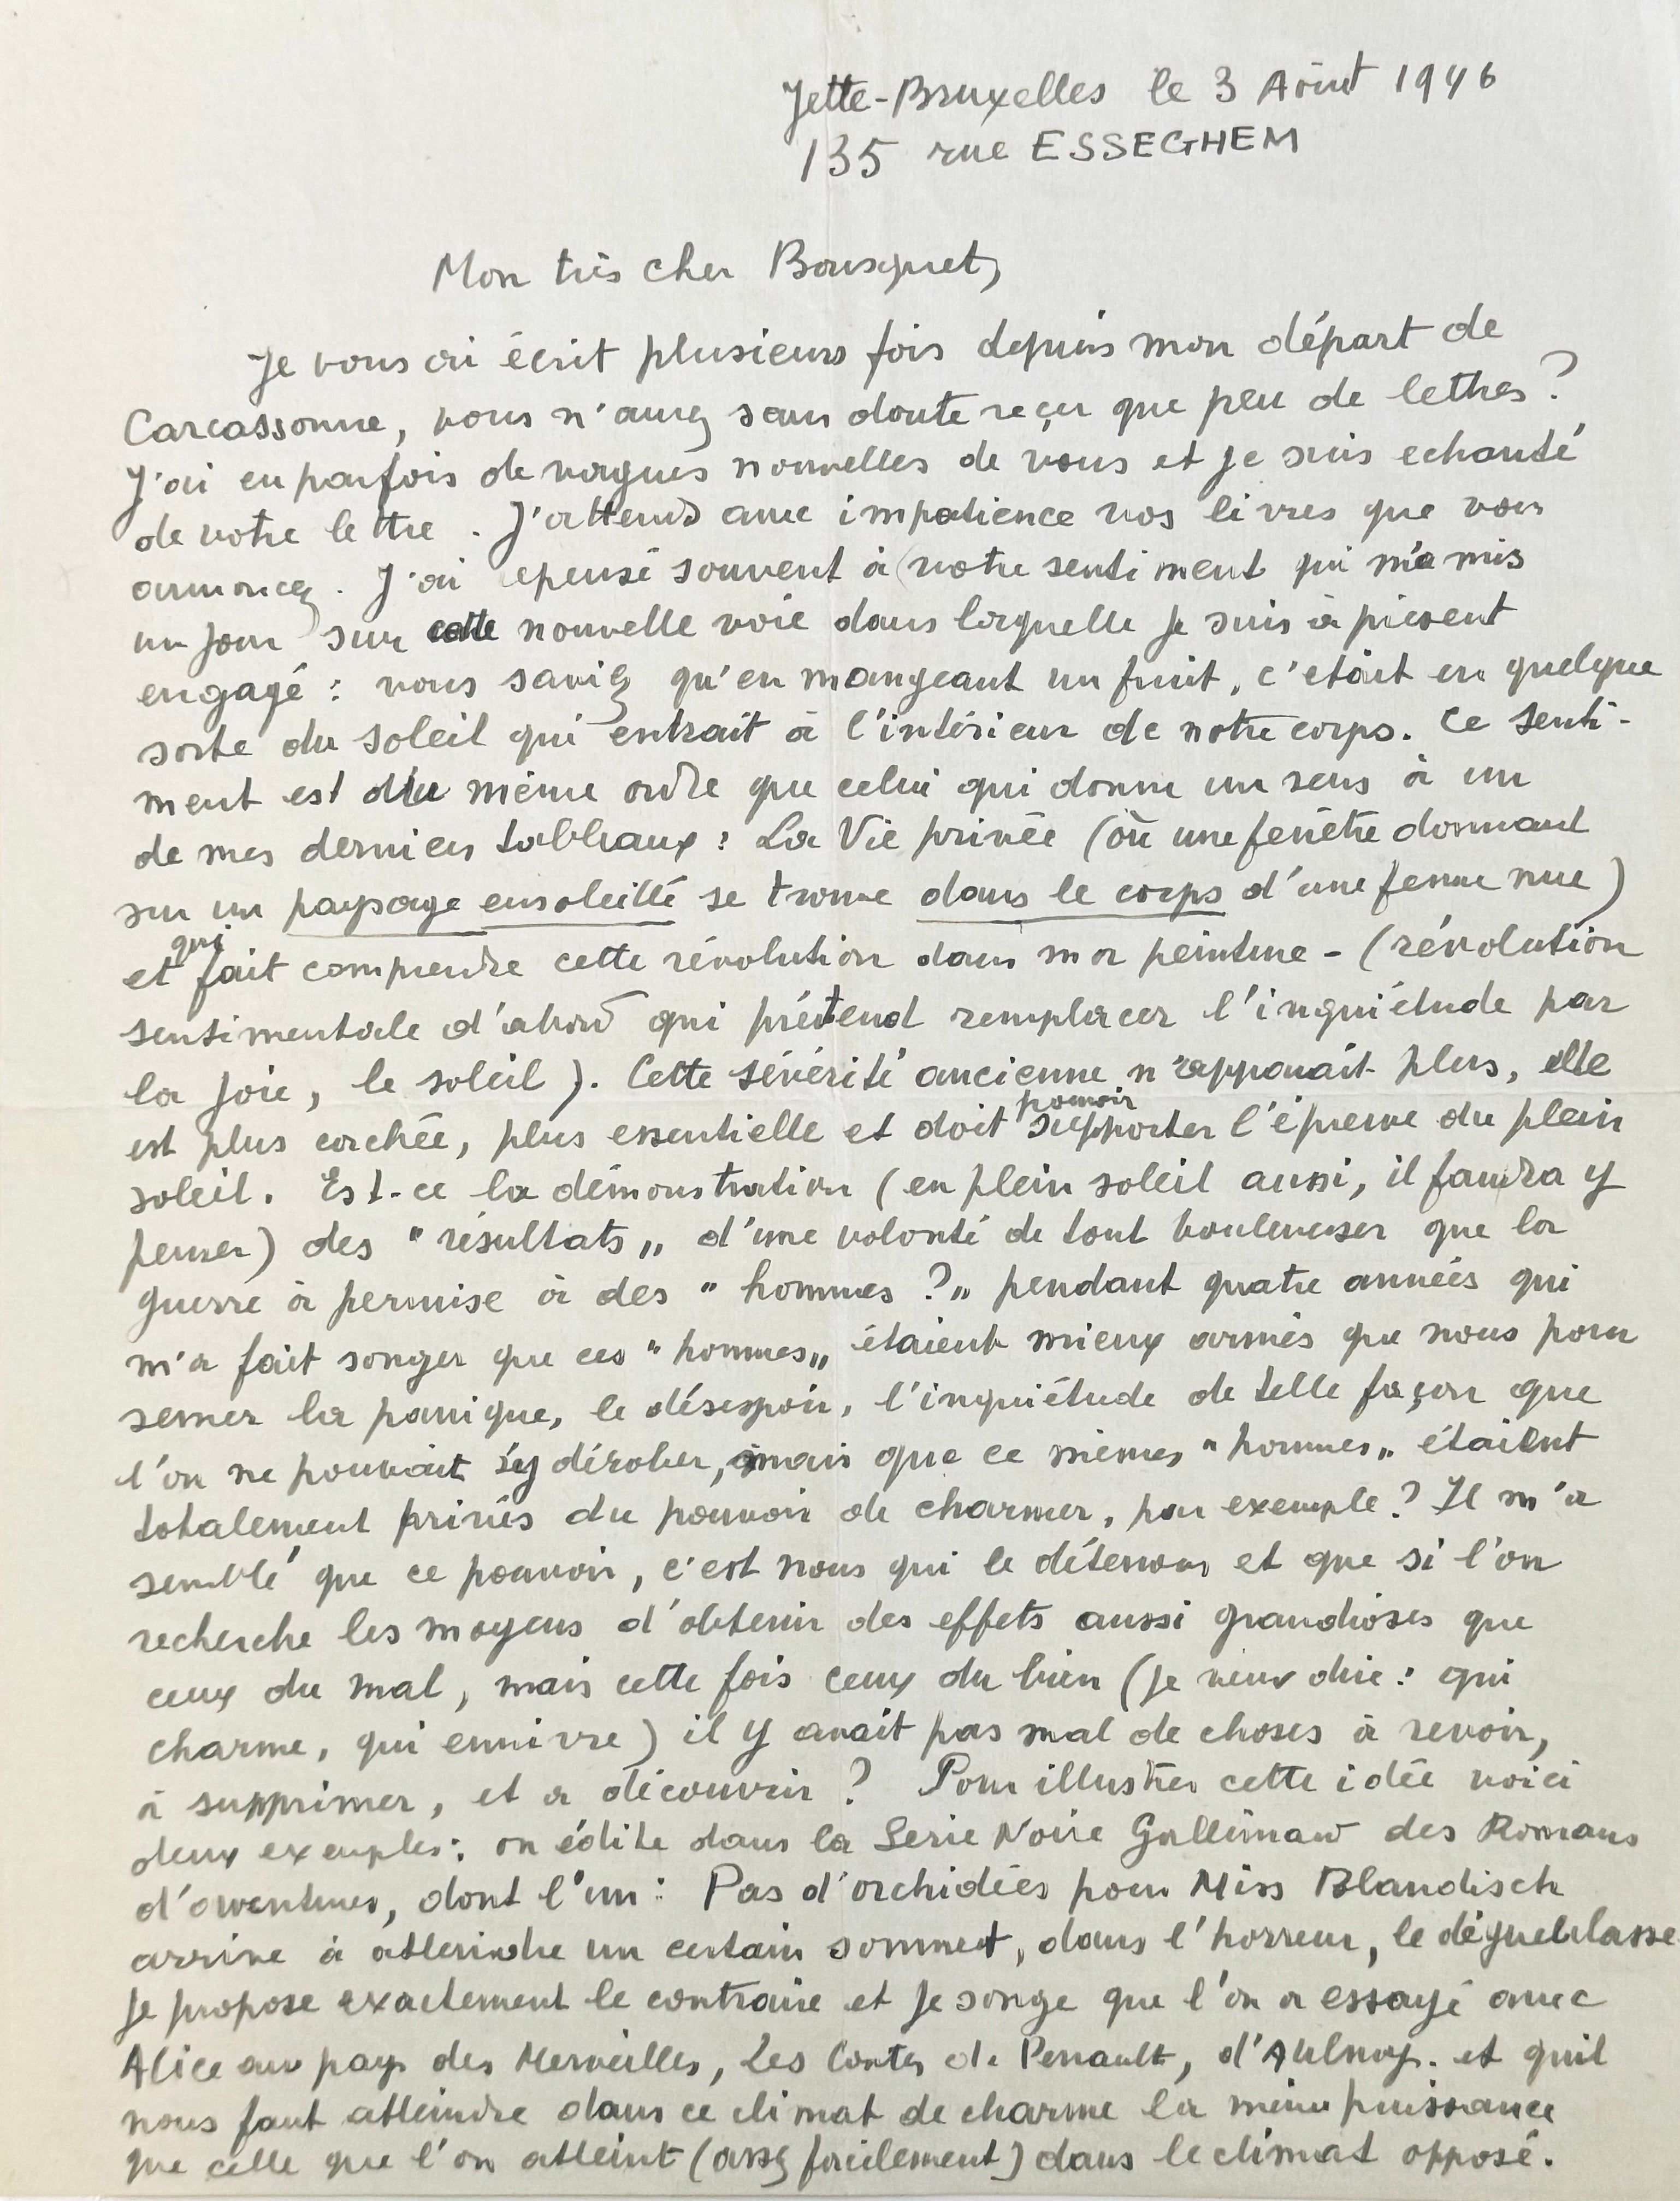 Jette-Bruxelles le 3 Août 1946
135 rue ESSEGHEM
Mon très cher Bousquet,
Je vous ai écrit plusieurs fois depuis mon départ de
Carcassonne, vous n'aurez sans doute reçu que peu de lettres?
J'ai eu parfois de vagues nouvelles de vous et je suis echanté
de votre lettre. J'attends avec impatience vos livres que vous
annoncez. J'ai epensé souvent à votre sentiment qui m'a mis
un jour sur cette nouvelle voie dans laquelle je suis à présent
engagé : vous saviez qu'en mangeant un fruit, c'etait en quelque
sorte du soleil qui entrait à l'intérieur de notre corps. Ce senti-
ment est du même ordre que celui qui donne un sens à un
de mes derniers tableaux : La Vie privée (où une fenêtre donnant
sur un paysage ensoleillé se trouve dans le corps d'une femme nue)
et qui fait comprendre cette révolution dans ma peinture - (révolution
sentimentale d'abord qui prétend remplacer l'inquiétude par
la joie, le soleil). Cette sévérité ancienne n'apparait plus, elle
est plus cachée, plus essentielle et doit pouvoir supporter l'épreuve du plein
soleil. Est-ce la démonstration (en plein soleil aussi, il faudra y
penser) des "résultats" d'une volonté de tout bouleverser que la
guerre à permise à des "hommes ?" pendant quatre années qui
m'a fait songer que ces "hommes" étaient mieux armés que nous pour
semer la panique, le désespoir, l'inquiétude de telle façon que
l'on ne pouvait s'y dérober, mais que ce mêmes "hommes" étaient
totalement privés du pouvoir de charmer, par exemple? Il m'a
semblé que ce pouvoir, c'est nous qui le détenons et que si l'on
recherche les moyens d'obtenir des effets aussi grandioses que
ceux du mal, mais cette fois ceux du bien (je veux dire : qui
charme, qui ennivre) il y avait pas mal de choses à revoir,
à supprimer, et a découvrir? Pour illustrer cette idée voici
deux exemples : on édite dans la Serie Noire Gallimard des Romans
d'aventures, dont l'un : Pas d'orchidées pour Miss Blandisch
arrive à atteindre un certain sommet, dans l'horreur, le dégueulasse
je propose exactement le contraire et je songe que l'on a essayé avec
Alice au pays des Merveilles, Les Contes de Perrault, d'Aulnoy. et qu'il
nous faut atteindre dans ce climat de charme la même puissance
que celle que l'on atteint (assez facilement) dans le climat opposé.